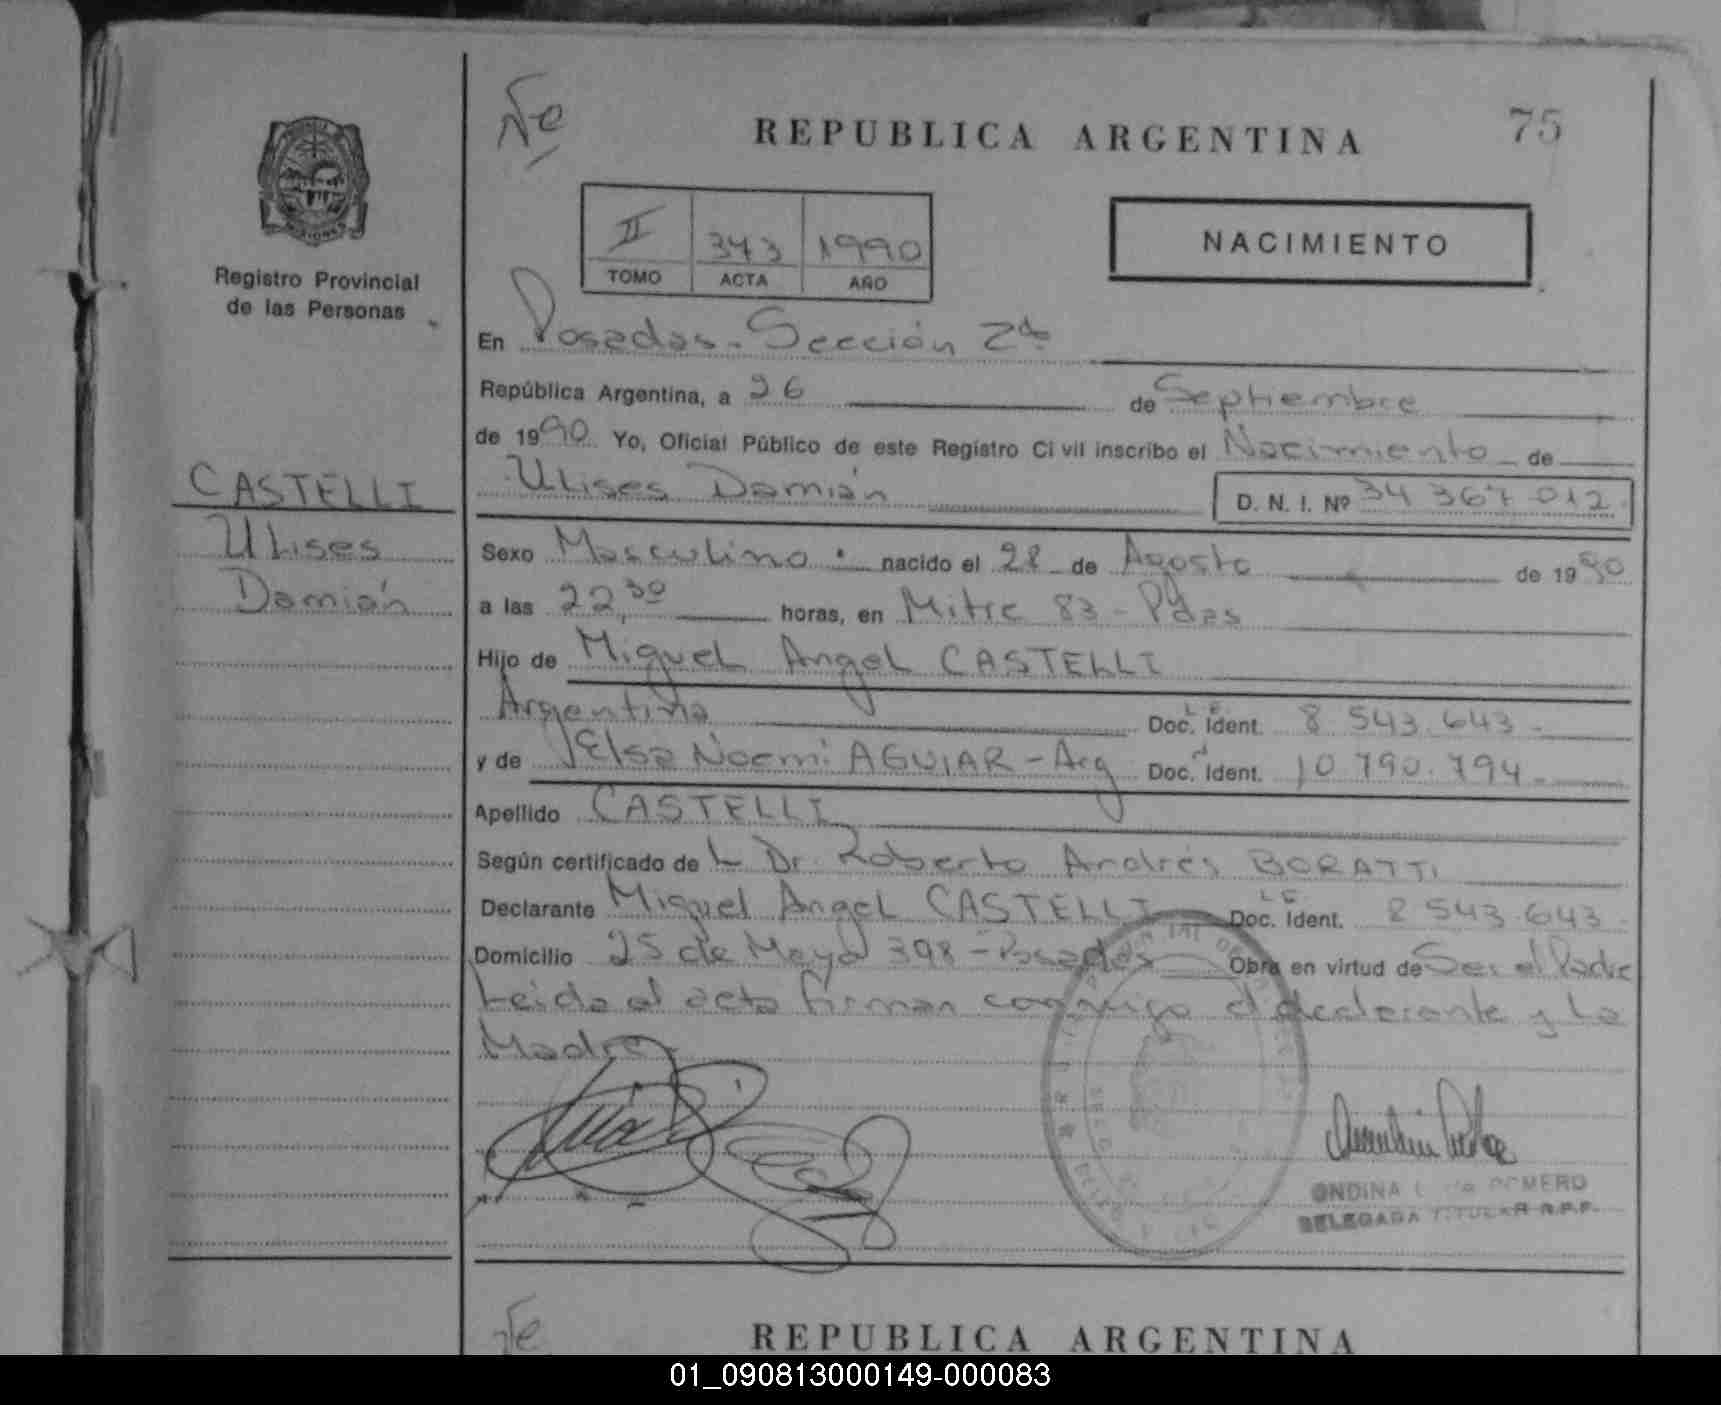 Ne
REPUBLICA ARGENTINA
75
II 343 1990
TOMO ACTA AÑO
NACIMIENTO
MISIONES
Registro Provincial
de las Personas
En Posadas - Sección 2da
República Argentina, a 26 de Septiembre
de 1990 Yo, Oficial Público de este Registro Civil inscribo el Nacimiento de
Ulises Damián D. N. I. Nº 34 367 012
CASTELLI
Ulises
Damián
Sexo Masculino nacido el 28 de Agosto de 1990
a las 22,30 horas, en Mitre 83 - Pdas
Hijo de Miguel Angel CASTELLI
Argentina Doc. Ident. L E 8 543 643 -
y de Elsa Noemi AGUIAR - Arg Doc. Ident. 10 790. 794 -
Apellido CASTELLI
Según certificado de L Dr. Roberto Andrés BORATTI
Declarante Miguel Angel CASTELLI Doc. Ident. L E 8 543 643 -
Domicilio 25 de Mayo 398 - Posadas Obra en virtud de Ser el Padre
Leida el acta firman conmigo el declarante y la
Madre
ONDINA ROMERO
DELEGADA TITULAR R.P.P.
Ne
REPUBLICA ARGENTINA
01_090813000149-000083